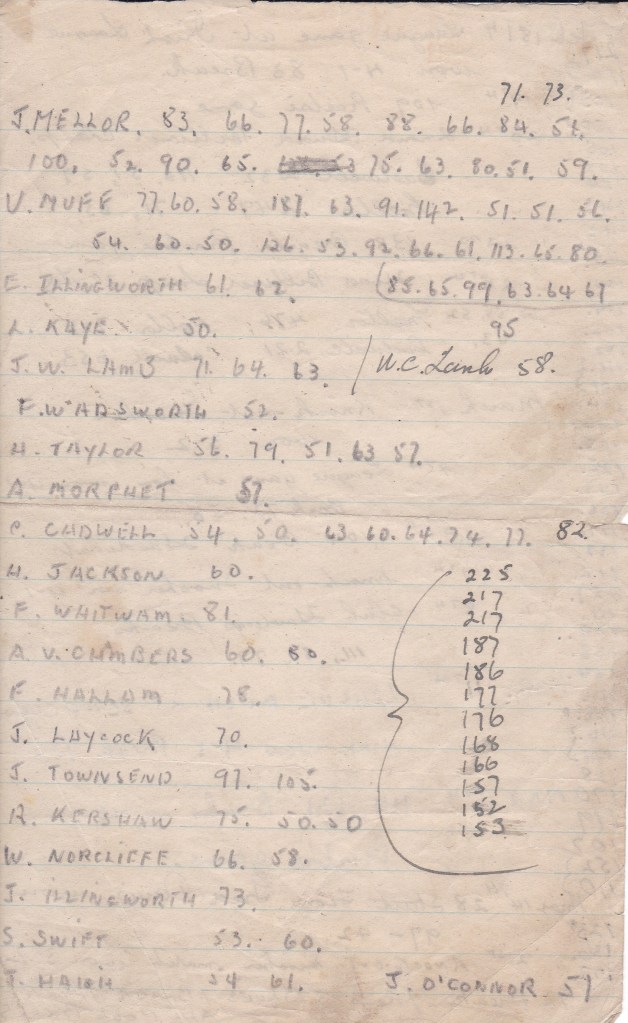 71. 73.
J. MELLOR. 83. 66. 77. 58. 88. 66. 84. 51.
100. 52. 90. 65. 75. 63. 80. 51. 59.
V. MUFF 77. 60. 58. 187. 63. 91. 142. 51. 51. 56.
54. 60. 50. 126. 53. 92. 66. 61. 113. 65. 80.
E. ILLINGWORTH 61. 62. (85. 65. 99. 63. 64 67
L. KAYE. 50. 95
J. W. LAMB 71. 64. 63. / W. C. 58.
F. WADSWORTH 52.
H. TAYLOR 56. 79. 51. 63 57.
A. MORPHET 57.
C. CADWELL 54. 50. 63 60. 64. 74. 77. 82.
H. JACKSON 60. 225
217
F. WHITWAM. 81. 217
187
A. V. CHMBERS 60. 80. 186
F. HALLAM 78. 177
176
J. LAYCOCK 70. 168
166
J. TOWNSEND 97. 105. 157
152
R. KERSHAW 75. 50. 50 153
W. NORCLIFFE 66. 58.
J. ILLINGWORTH 73.
S. SWIFT 53. 60.
J. HAIGH 54 61. J. O'CONNOR 57